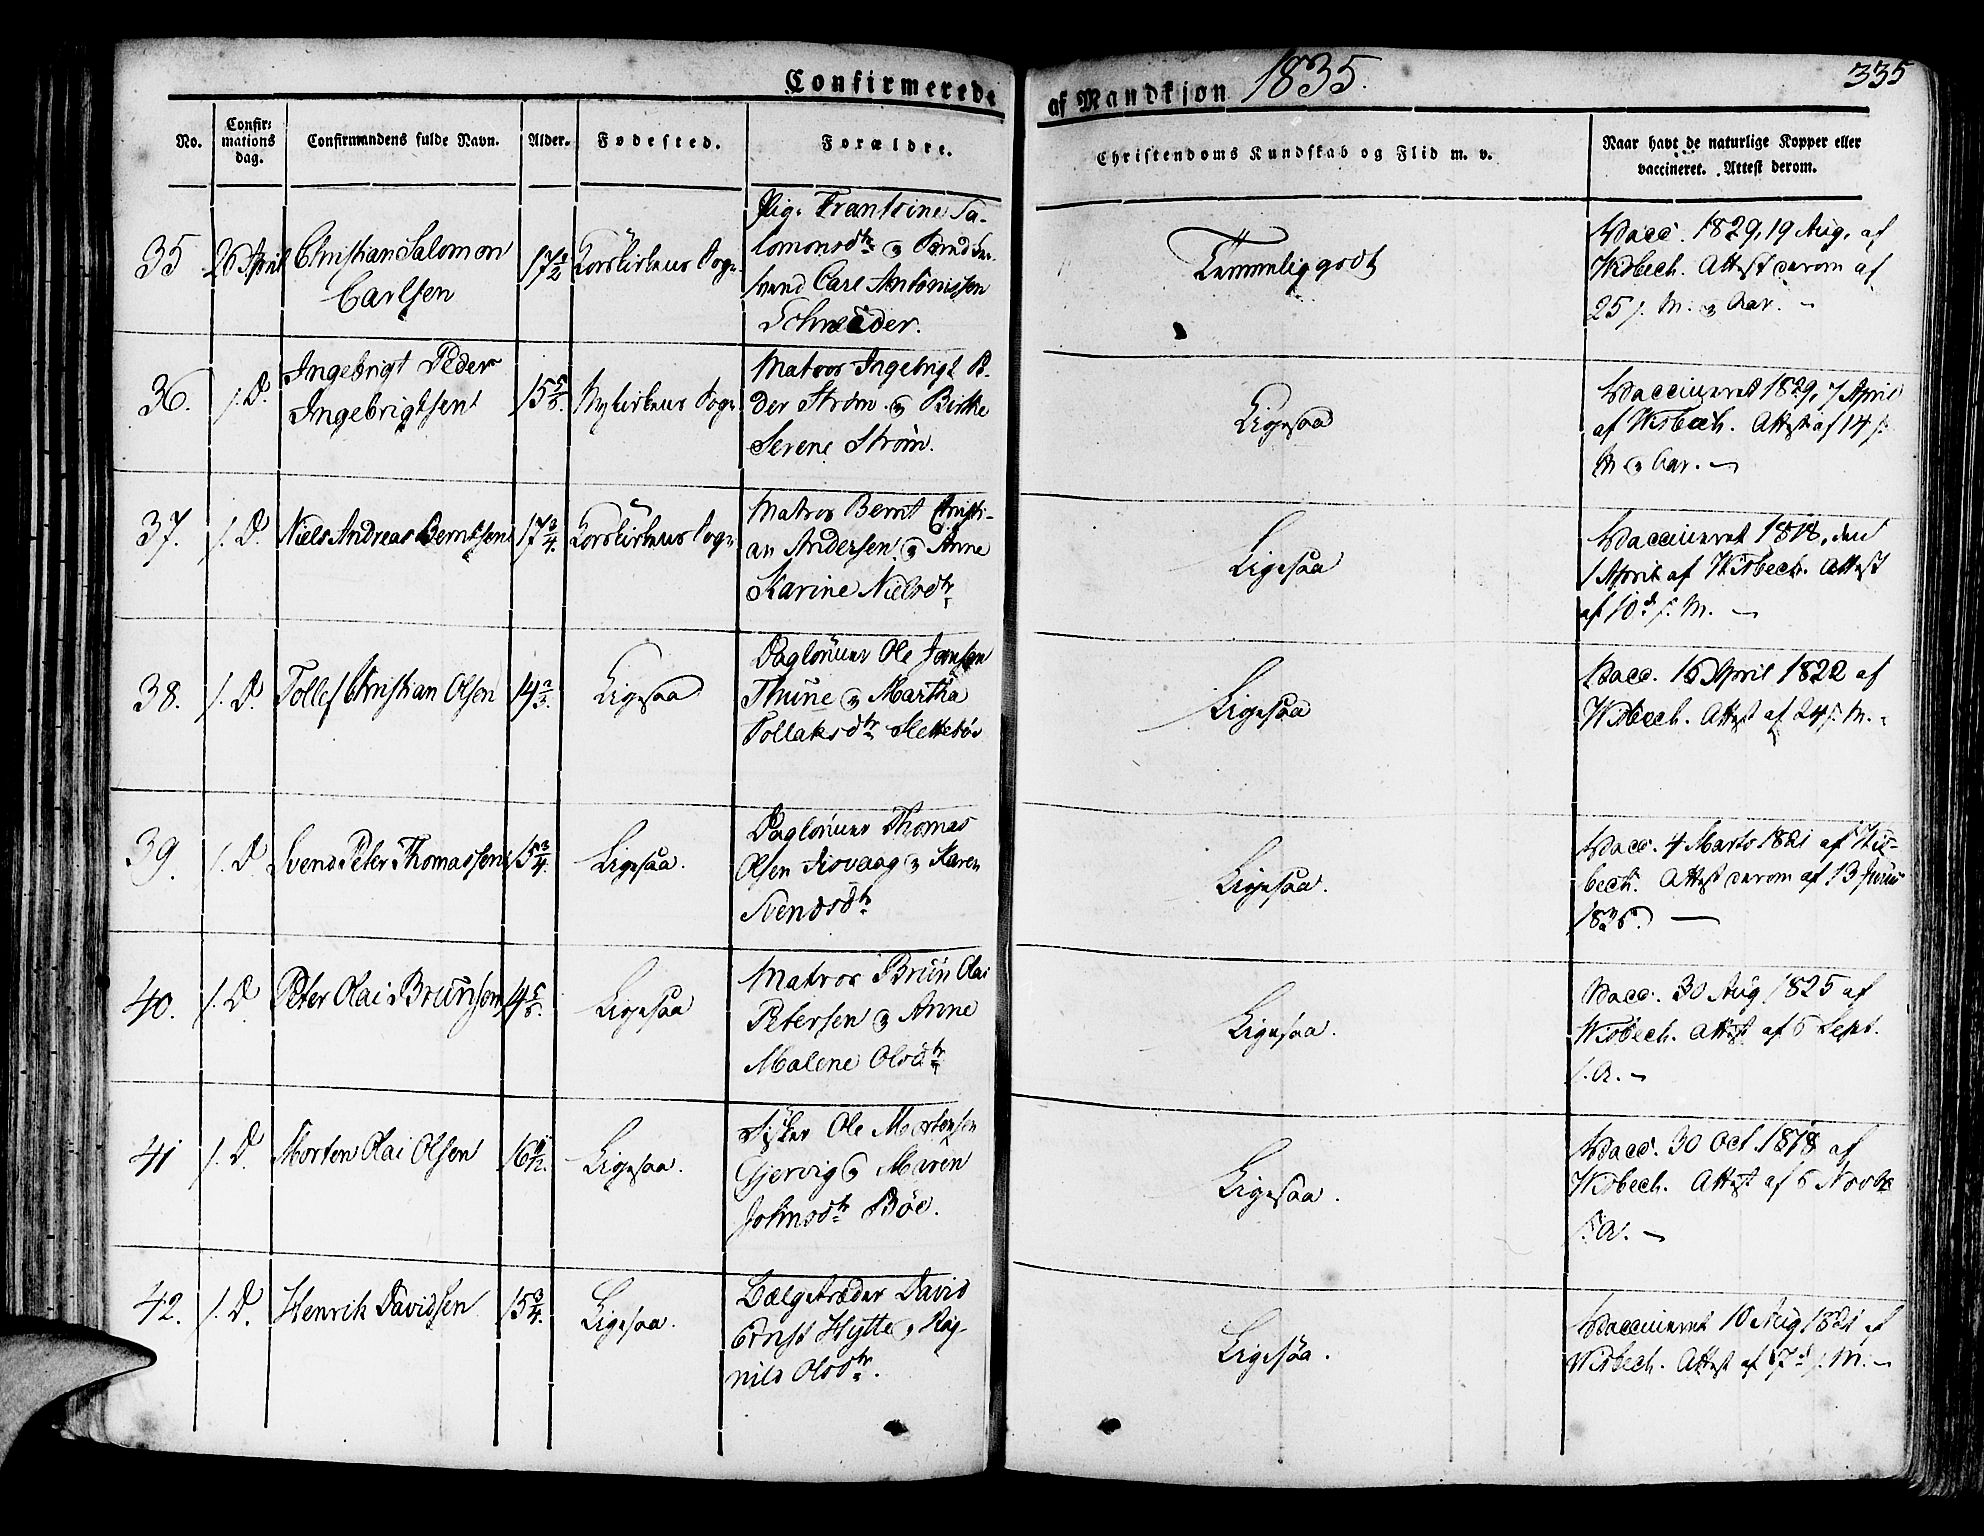 Confirmerede af Mandkjøn 1835. 335
No. Confirmations dag. Confirmandens fulde Navn. Alder. Fødested. Forældre. Christendoms Kundskab og Flid m. v. Naar havt de naturlige Kopper eller vaccineret. Attest derom.
35 26 April Christian Salomon
Carlsen
17½ Korskirkens Sogn
Pige Frantsine Sa-
lomonsdtr &
Svend Carl Antonissen
Schneider.
Temmelig godt
Vacc. 1829, 19 Aug. af
Wisbech. Attest derom af
25 s. M. & Aar. –
36. s. D. Ingebrigt Peder
Ingebrigtsen
15 5/6. Nykirkens Sogn
Matros Ingebrigt Pe-
der Strøm & Birthe
Serene Strøm.
Ligesaa
Vaccineret 1829, 7 April
af Wisbech. Attest af 14 s.
M. & Aar. –
37. s. D. Niels Andreas Berntsen 17¾. Korskirkens Sogn
Matros Bernt Christi-
an Andersen & Anne
Karine Nielsdtr
Ligesaa
Vaccineret 1818, den
1 April af Wisbech. Attest
af 10d s. M. –
38. s. D. Tollef Christian Olsen 14⅔. Ligesaa
Dagløner Ole Jansen
Thune & Martha
Tollaksdtr Slettebøe
Ligesaa
Vacc. 16 April 1822 af
Wisbech. Attest af 24 s. M. –
39. s. D Svend Peter Thomassen 15¾. Ligesaa.
Dagløner Thomas
Olsen & Karen
Svendsdtr
Ligesaa.
Vacc. 4 Marts 1821 af Wis-
bech. Attest derom af 13 Junii
1835. –
40. s. D Peter Olai Brunsen 14 5/6. Ligesaa
Matros Brun Olai
Petersen & Anne
Malene Olsdtr
Ligesaa.
Vacc. 30 Aug 1825 af
Wisbech. Attest af 6 Sept.
s. A. –
41 s. D. Morten Olai Olsen 16 Ligesaa.
Fisker Ole Mortensen
Gjervig & Maren
Johnsdtr Bøe.
Ligesaa.
Vacc. 30 Oct. 1818 af
Wisbech. Attest af 6 Novbr
s. A. –
42. s. D. Henrik Davidsen 15¾. Ligesaa.
Bælgetræder David
Ernst Hytte & Rag-
nild Olsdtr.
Ligesaa.
Vaccineret 10 Aug 1821 af
Wisbech. Attest af 17d s. M. –